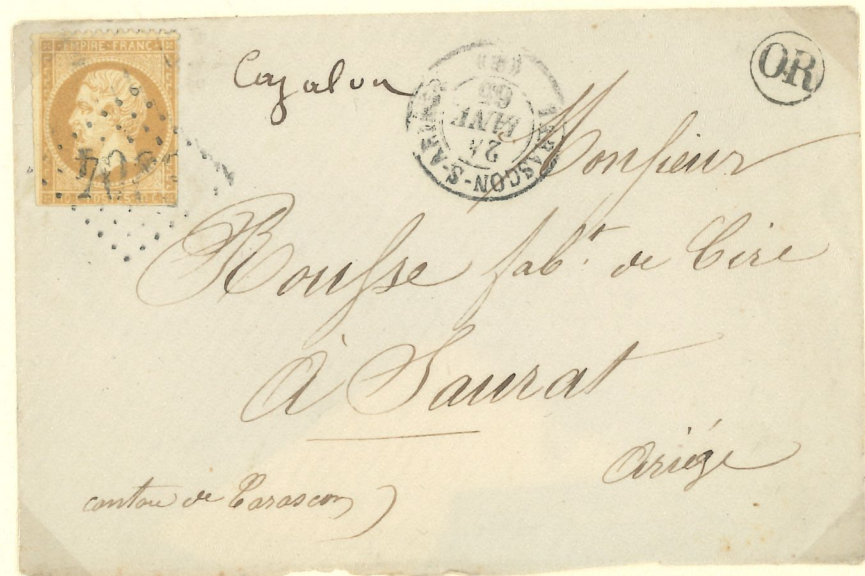 EMPIRE FRANC
Cazalou
TARASCON-S-ARIEGE
24
JANV
65
OR
Monsieur
Rousse fabt. de Cire
à Saurat
Ariége
canton de Tarascon)